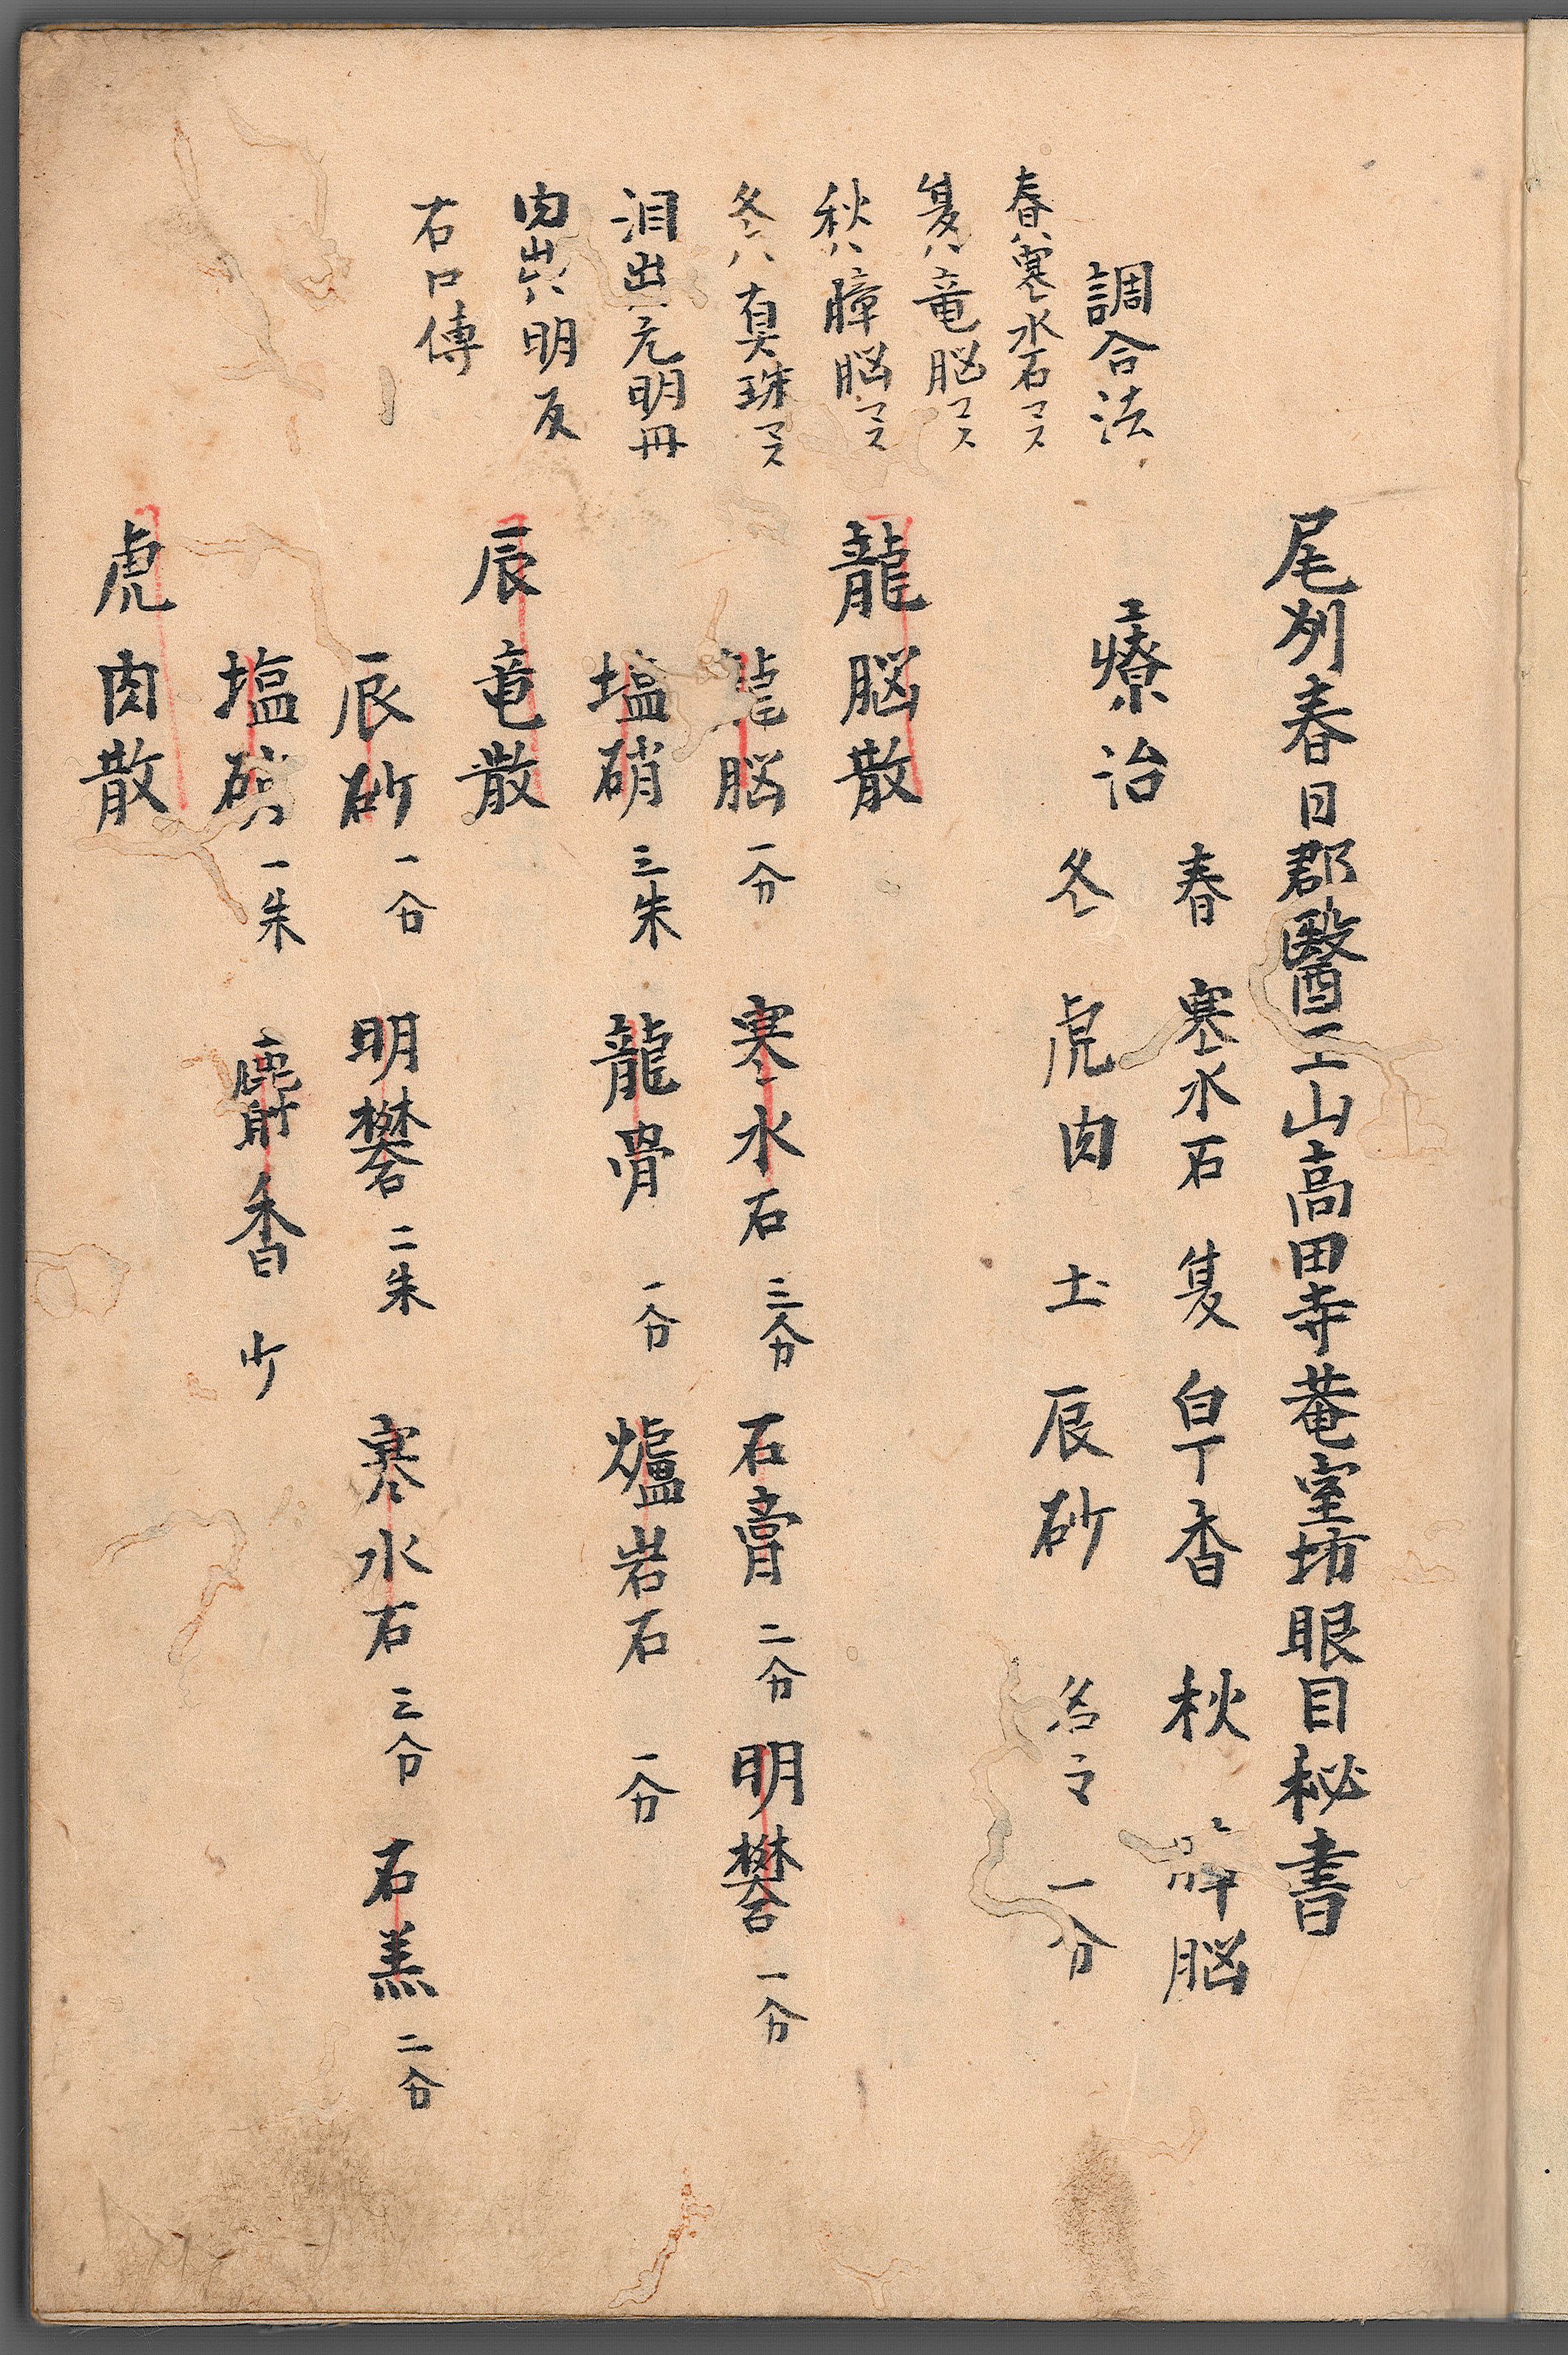 尾州春日郡醫王山高田寺菴室坊眼目秘書
療治
春 寒水石 夏 白丁香 秋 脳
冬 虎肉 土 辰砂 各々 一分
調合法
春ハ寒水石マス
夏ハ竜脳マス
秋ハ樟脳マス
冬ハ真珠マス
泪出 明丹
肉出ハ明反
右口傳
龍脳散
龍脳 一分 寒水石 三分 石膏 二分 明礬 一分
塩硝 三朱 龍骨 一分 爐岩石 一分
辰竜散
辰砂 一分 明礬 二朱 寒水石 三分 石羔 二分
塩硝 一朱 麝香 少
虎肉散